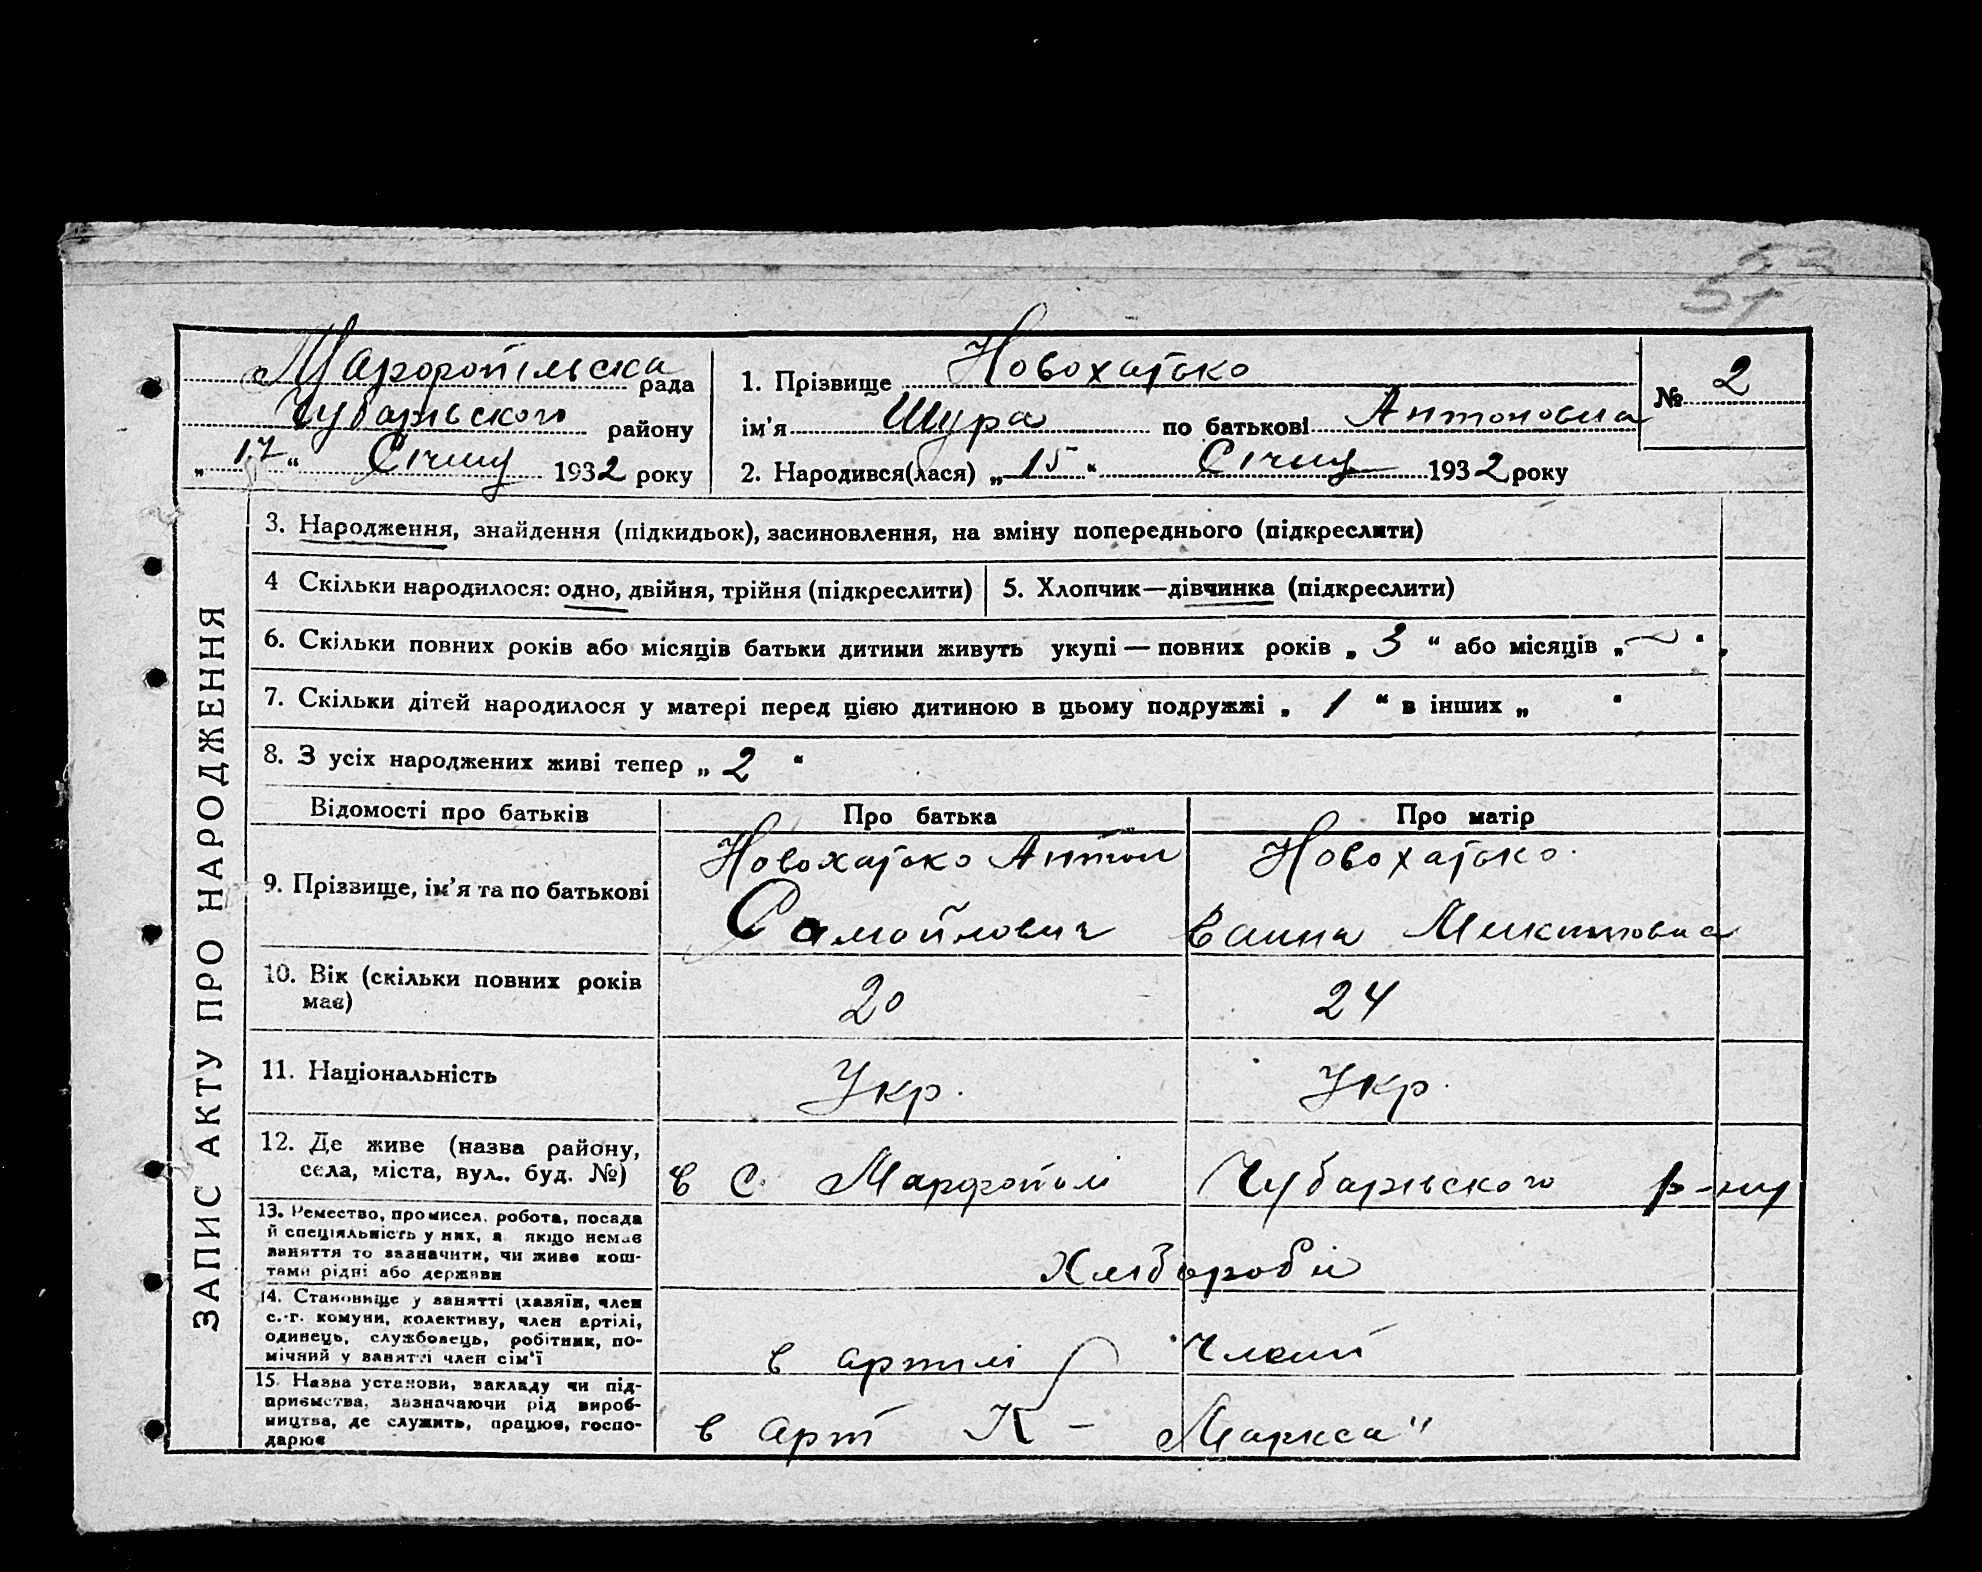 53
51
Марфопільска рада
Чубарьського району
„ 17 “ Січня 1932 року
1. Прізвище Новохатько
ім’я Шура по батькові Антоновна
№ 2
2. Народився(лася) „ 15 “ Січня 1932 року
ЗАПИС АКТУ ПРО НАРОДЖЕННЯ
3. Народження, знайдення (підкидьок), засиновлення, на вміну попереднього (підкреслити)
4 Скільки народилося: одно, двійня, трійня (підкреслити)
5. Хлопчик—дівчинка (підкреслити)
6. Скільки повних років або місяців батьки дитини живуть укупі — повних років „ 3 “ або місяців „ ~ “
7. Скільки дітей народилося у матері перед цією дитиною в цьому подружжі „ 1 “ в інших „ “
8. З усіх народжених живі тепер „ 2 “
Відомості про батьків
Про батька
Про матір
9. Прізвище, ім’я та по батькові
Новохатько Антон
Самойлович
Новохатько
Ганна Микитовна
10. Вік (скільки повних років
має)
20
24
11. Національність
Укр.
Укр.
12. Де живе (назва району,
села, міста, вул.. буд. №)
в с. Марфополі Чубарьського р-ну
13. Ремество, промисел, робота, посада
й спеціяльність у них, а якщо немає
заняття то зазначити, чи живе кош-
тами рідні або держави
Хлібороби
14. Становище у занятті (хазяїн, член
с.-г. комуни, колективу, член артілі,
одинець, службовець, робітник, по-
мічний у занятті член сім’ї
в артілі
15. Назва установи, закладу чи під-
приємства, зазначаючи рід вироб-
ництва, де служить, працює, госпо-
дарює
в арт К - Маркса"